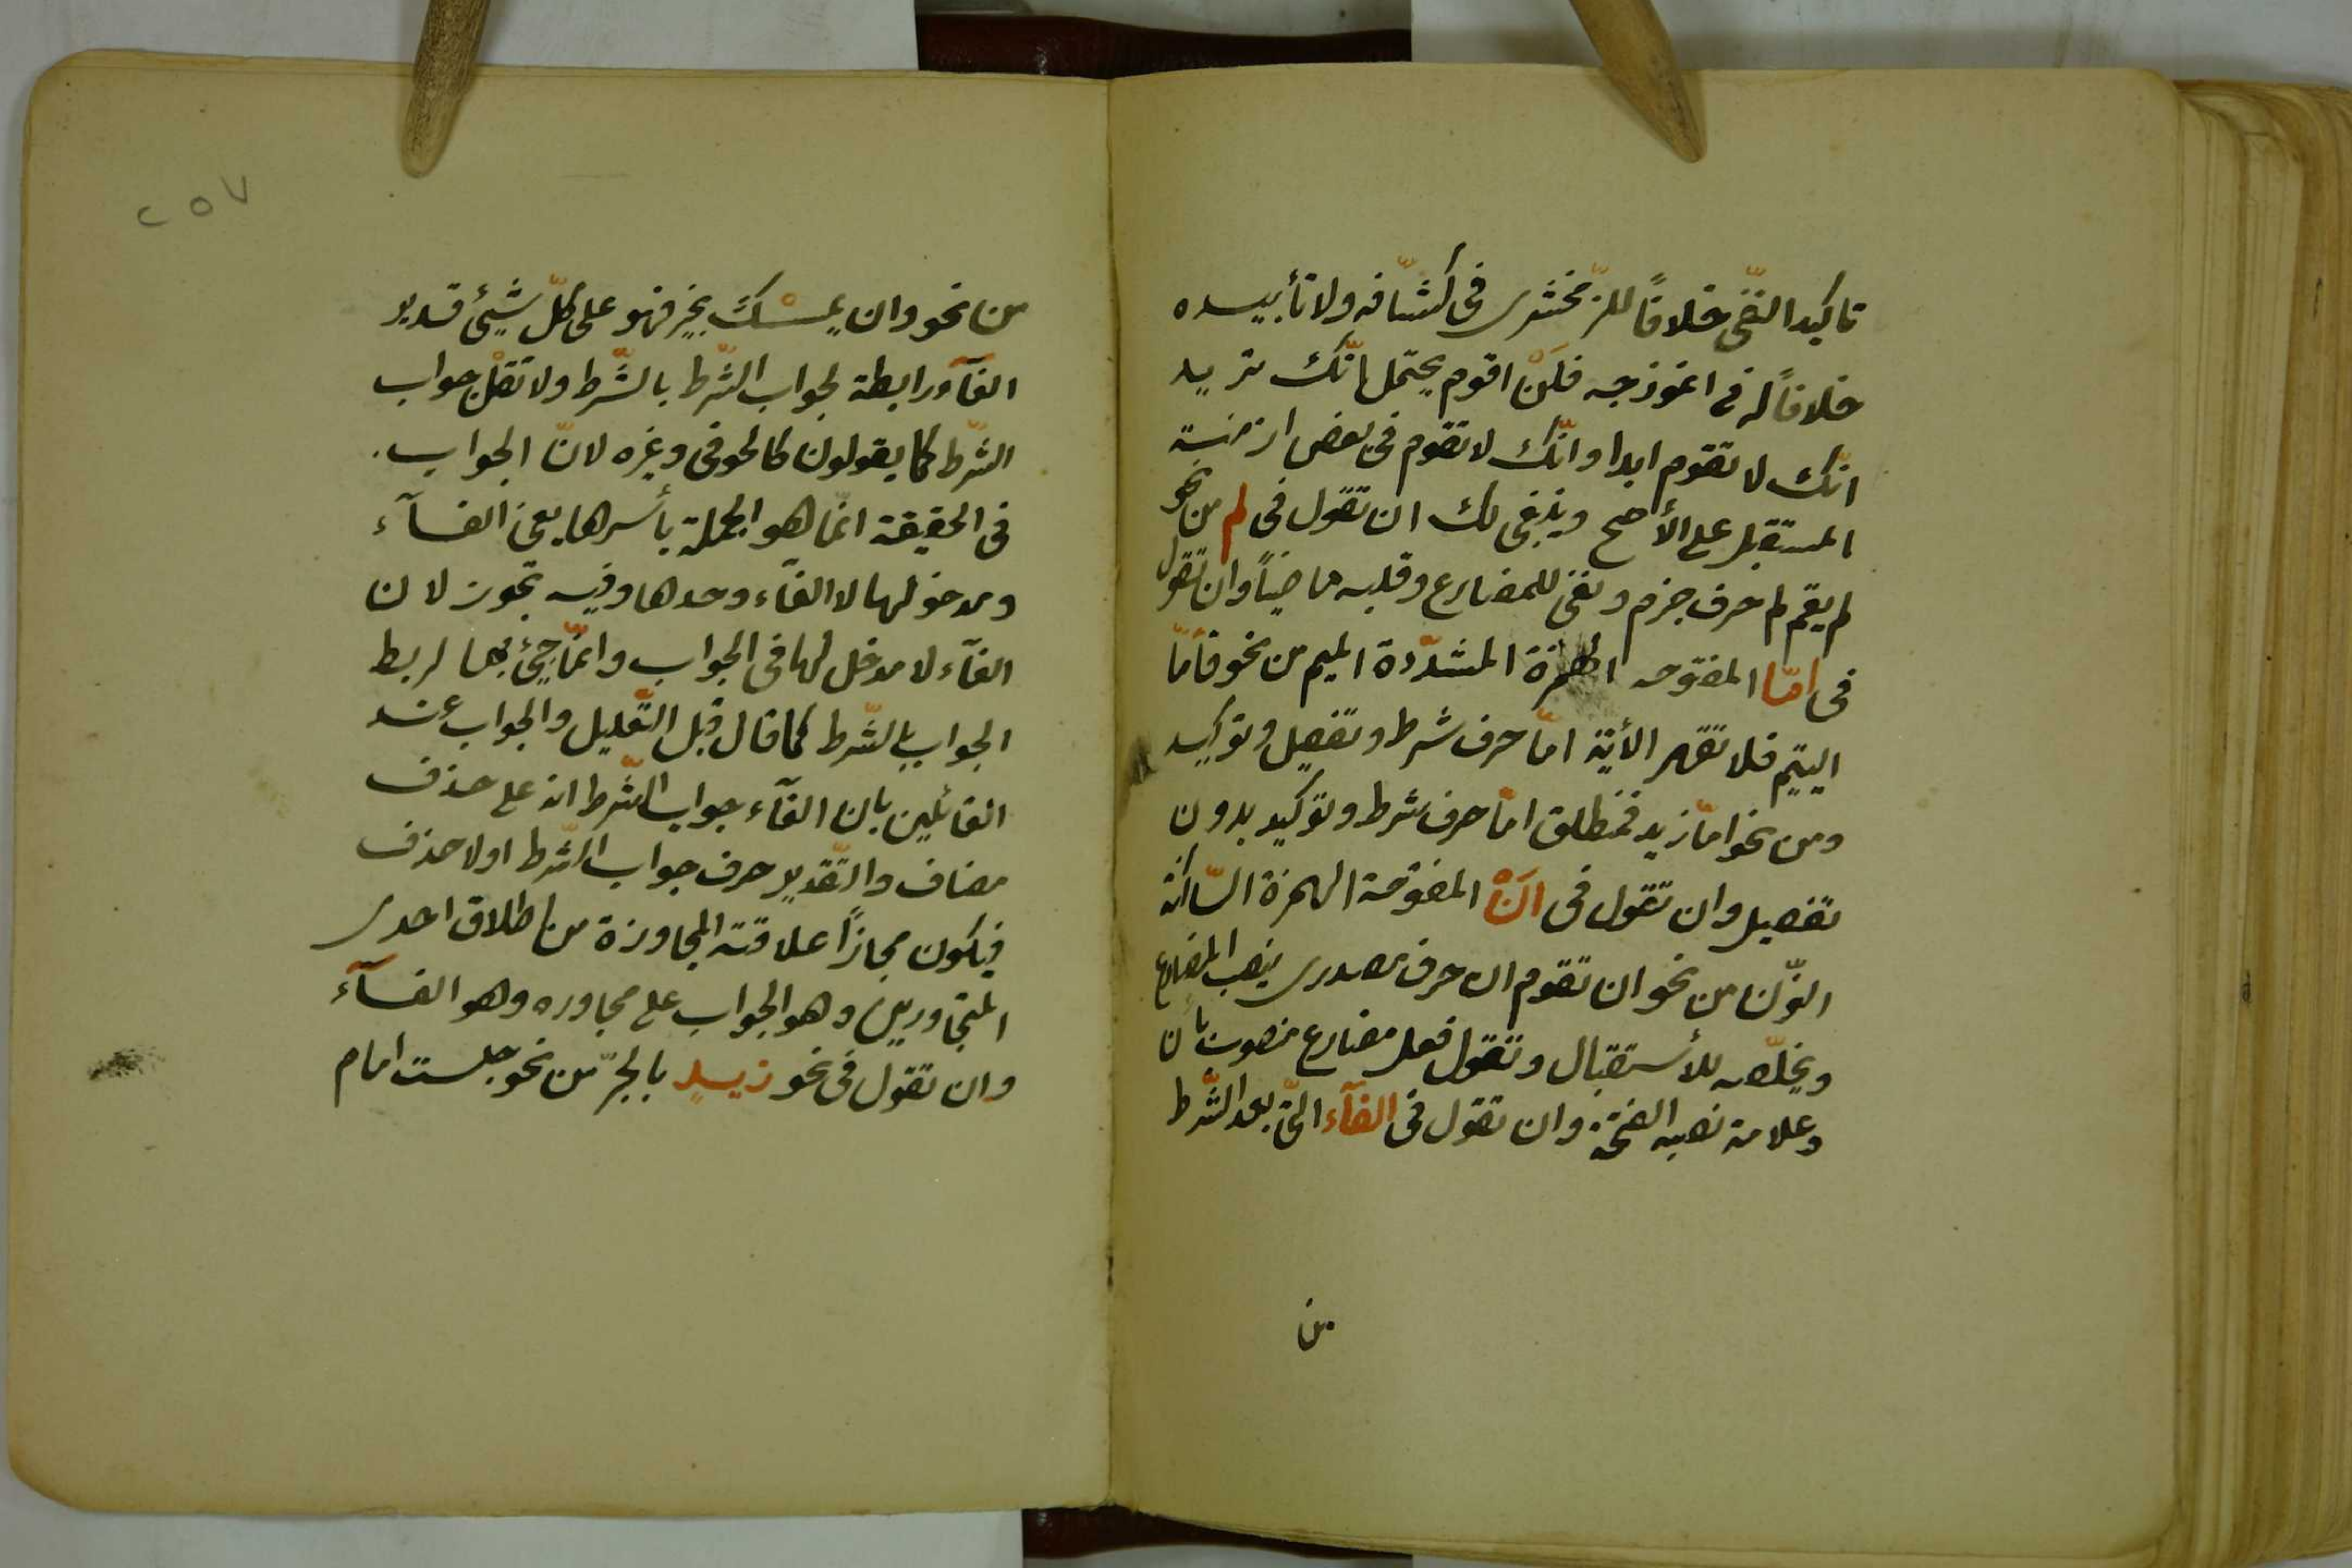 تاكيد النّفى خلافاً للزّمخشرى فى كشّافه ولا تأبيده
خلافاً له فى انموذجه فلَنْ اقوم يحتمل انّك تريد
انّك لا تقوم ابدا وانّك لا تقوم فى بعض ازمنة
المستقبل على الأصح وينبغى لك ان تقول فى لم من نحو
لم يقم لم حرف جزم ونفى للمضارع وقلبه ماضياً وان تقول
فى امّا المفتوحه الهمزة المشدّدة الميم من نحو فأمّا
اليتيم فلا تقهر الأية امّا حرف شرط وتفصيل وتوكيد
ومن نحو امّا زيد فمنطلق امّا حرف شرط وتوكيد بدون
تفصيل وان تقول فى اَنْ المفتوحة الهمزة السّاكنة
النّون من نحو ان تقوم ان حرف مصدرى ينصب المضارع
ويخلّصه للأستقبال وتقول فعل مضارع منصوب بأن
وعلامة نصبه الفتحة وان تقول فى الفآء الّتى بعد الشّرط
من
٢٥٧
من نحو وان يمسسْكَ بخير فهو على كلّ شيئ قدير
الفآء رابطة لجواب الشّرط بالشّرط ولا تقلْ جواب
الشّرط كما يقولون كالحوفى وغيره لانّ الجواب
فى الحقيقة انّما هو الجملة بأسرها يعنى الفآء
ومدخولها لا الفآء وحدها وفيه تجوز لان
الفآء لا مدخل لها فى الجواب وانّما جيئ بها لربط
الجواب بالشّرط كما قال قبل التّعليل والجواب عند
القائلين بان الفآء جواب الشّرط انه على حذف
مضاف والتّقدير حرف جواب الشّرط اولا حذف
فيكون مجازاً علاقته المجاورة من اطلاق احدى
المتجاورين وهو الجواب على مجاوره وهو الفآء
وان تقول فى نحو زيدٍ بالجرّ من نحو جلست امام